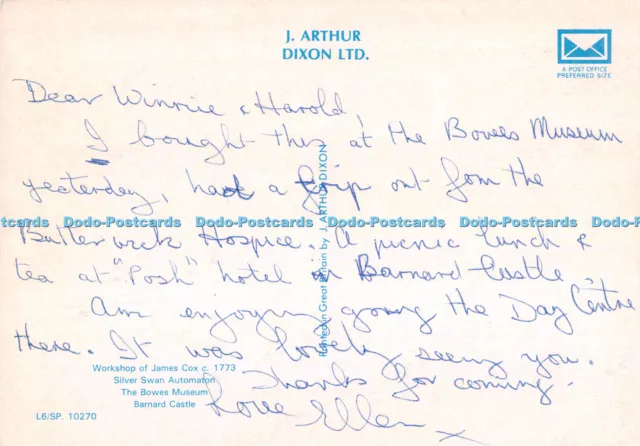 J. ARTHUR
DIXON LTD.
A POST OFFICE
PREFERRED SIZE
Dear Winnie & Harold,
I bought this at the Bowes Museum
yesterday, had a trip out from the
Butterwick Hospice. A picnic lunch &
tea at "Posh" hotel in Barnard Castle.
Am enjoying going the Day Centre
there. It was lovely seeing you.
Thanks for coming.
Love Ellen x
Printed in Great Britain by J. ARTHUR DIXON
Workshop of James Cox c. 1773
Silver Swan Automaton
The Bowes Museum
Barnard Castle
L6/SP. 10270
Dodo-Postcards Dodo-Postcards Dodo-Postcards Dodo-Postcards Dodo-Postcards